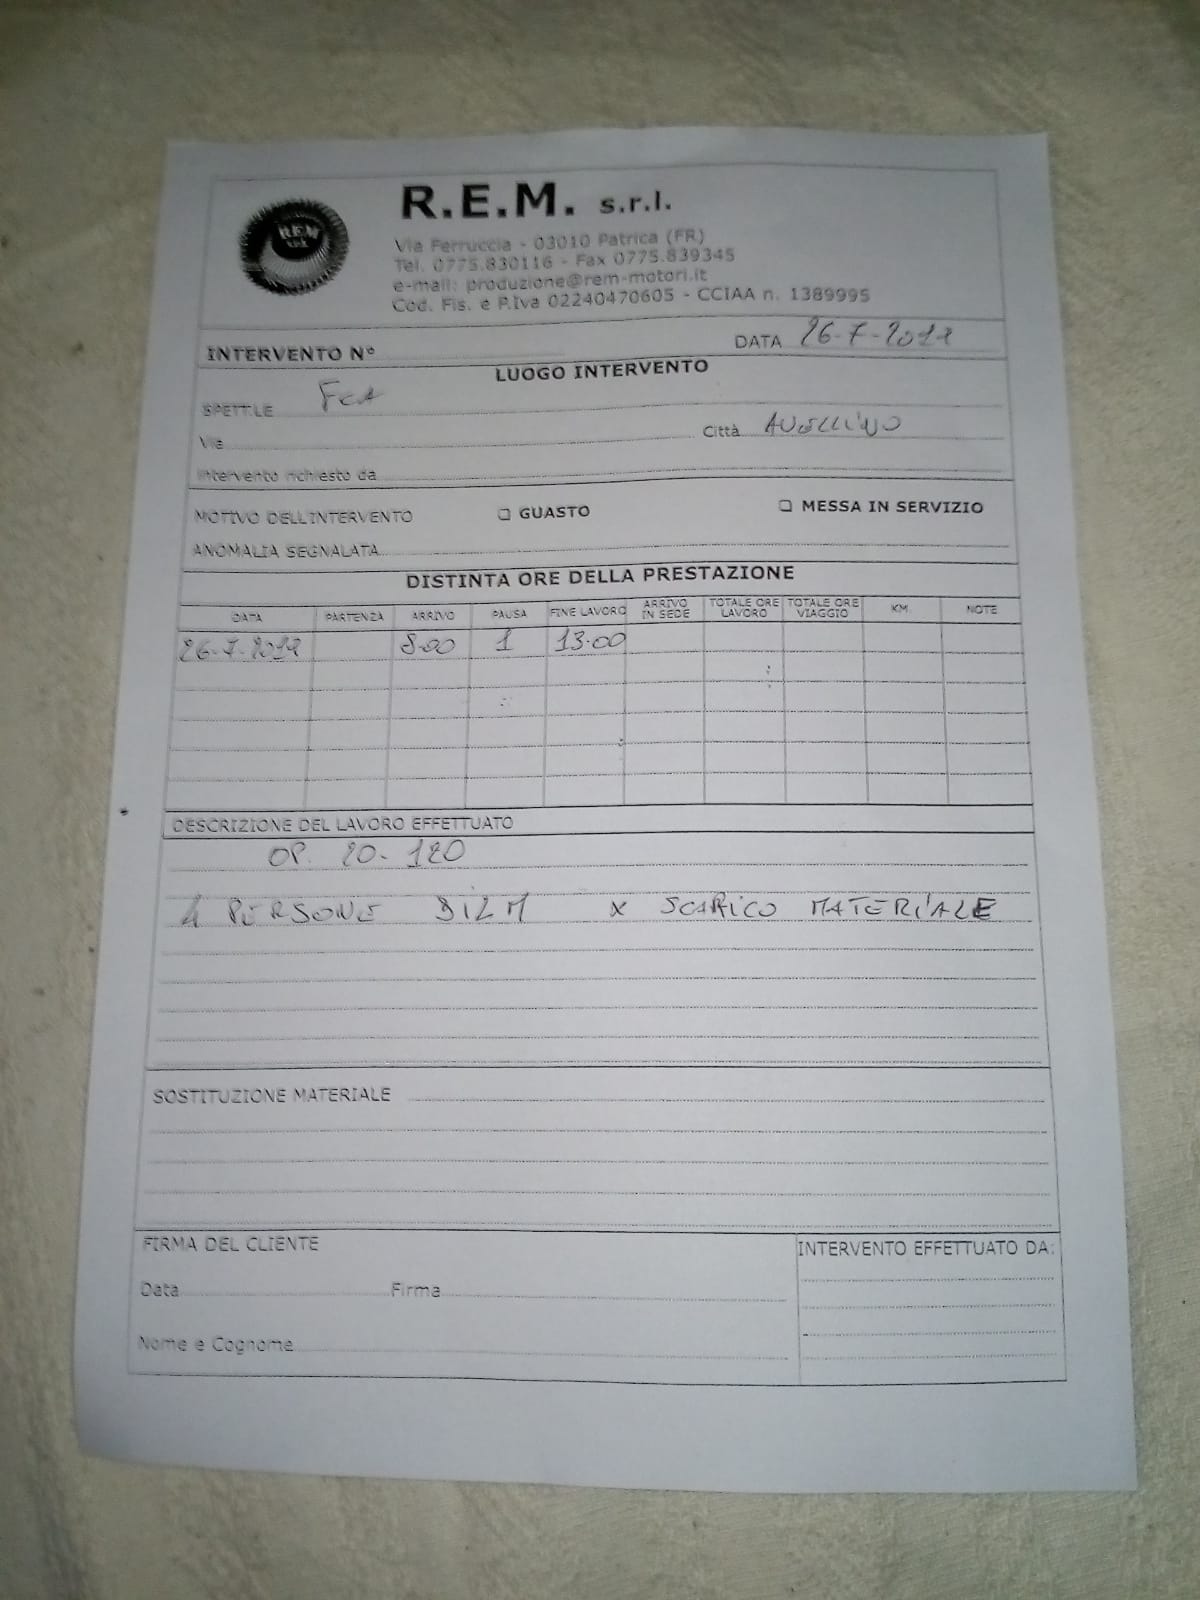 REM
s.r.l.
R.E.M. s.r.l.
Via Ferruccia - 03010 Patrica (FR)
Tel. 0775.830116 - Fax 0775.839345
e-mail: produzione@rem-motori.it
Cod. Fis. e P.Iva 02240470605 - CCIAA n. 1389995
INTERVENTO N° DATA 26-7-2017
LUOGO INTERVENTO
SPETT.LE FCA
Via Città AVELLINO
Intervento richiesto da
MOTIVO DELL'INTERVENTO ❑ GUASTO ❑ MESSA IN SERVIZIO
ANOMALIA SEGNALATA
DISTINTA ORE DELLA PRESTAZIONE
DATA PARTENZA ARRIVO PAUSA FINE LAVORO ARRIVO IN SEDE TOTALE ORE LAVORO TOTALE ORE VIAGGIO KM. NOTE
26-7-2017 8.00 1 13.00
DESCRIZIONE DEL LAVORO EFFETTUATO
OP. 20- 120
PERSONE X SCARICO MATERIALE
SOSTITUZIONE MATERIALE
FIRMA DEL CLIENTE INTERVENTO EFFETTUATO DA:
Data Firma
Nome e Cognome